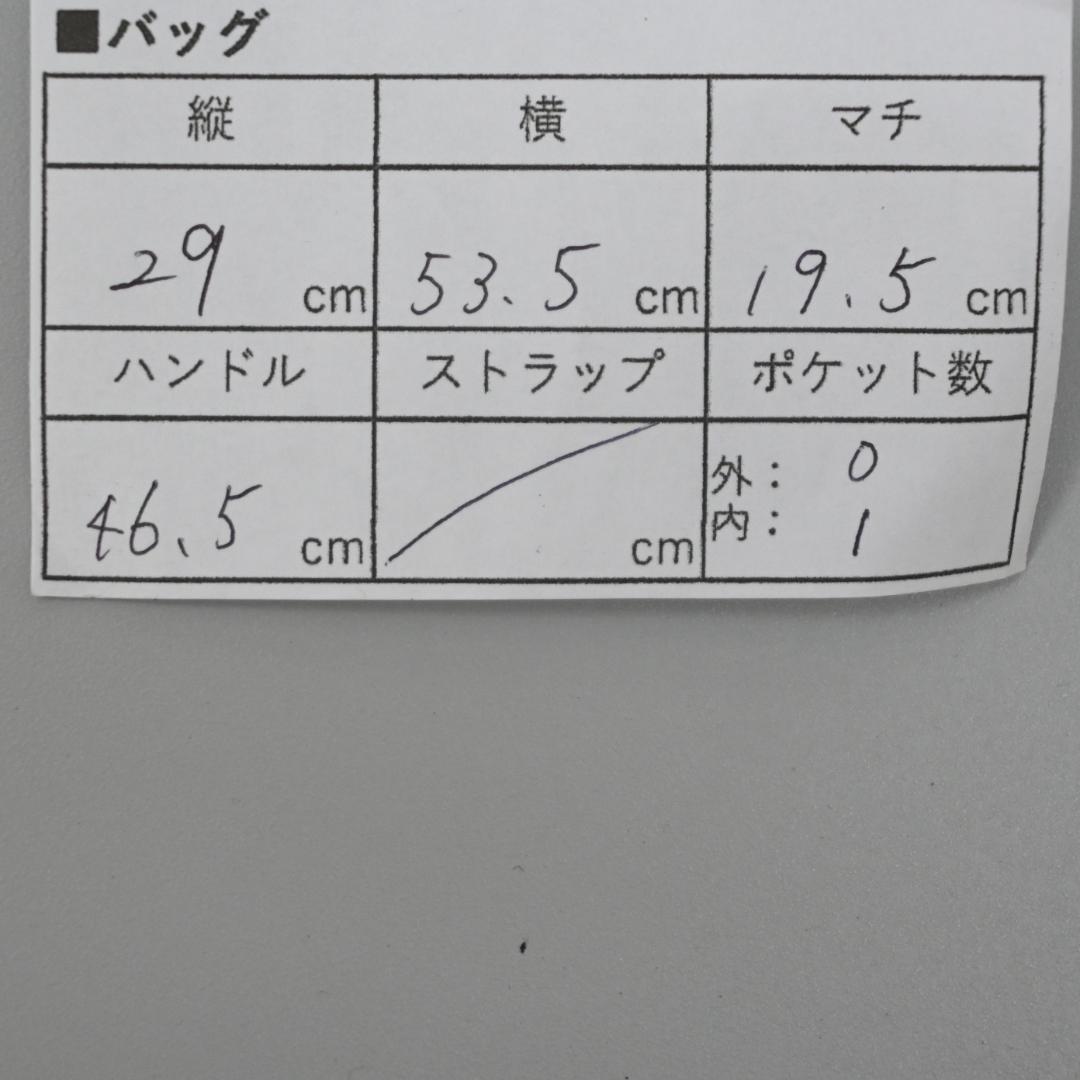 ■バッグ
縦 横 マチ
29 cm 53.5 cm 19.5 cm
ハンドル ストラップ ポケット数
46.5 cm cm 外: 0
内: 1